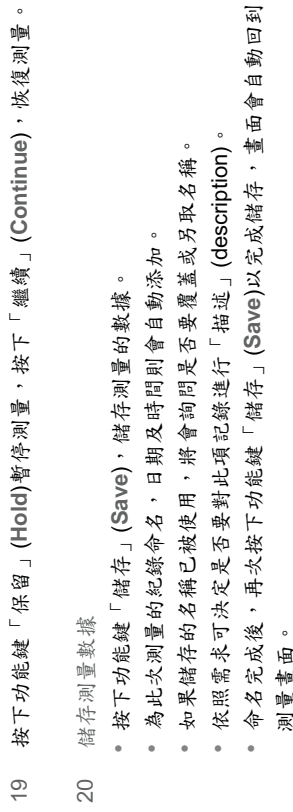 19 按下功能鍵「保留」(Hold)暫停測量，按下「繼續」(Continue)，恢復測量。
20 儲存測量數據
• 按下功能鍵「儲存」(Save)，儲存測量的數據。
• 為此次測量的紀錄命名，日期及時間則會自動添加。
• 如果儲存的名稱已被使用，將會詢問是否要覆蓋或另取名稱。
• 依照需求可決定是否要對此項記錄進行「描述」(description)。
• 命名完成後，再次按下功能鍵「儲存」(Save)以完成儲存，畫面會自動回到
測量畫面。